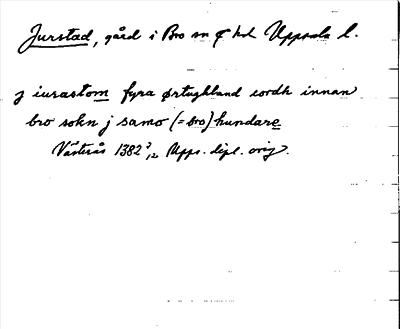 Jurstad, gård i Bro sn o hd Uppsala l.
j iurastom fyra ørtughland iordh innan
bro sokn j samo (=bro) hundare
Västerås 1382 2/12 Upps. dipl. orig.